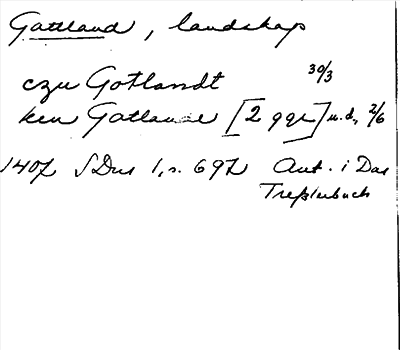 Gottland, landskap
czu Gotlandt 30/3
ken Gatlande [2 ggr] u.d., 2/6
1407 SDns 1, s. 697 Ant. i Das
Tresslerbuch